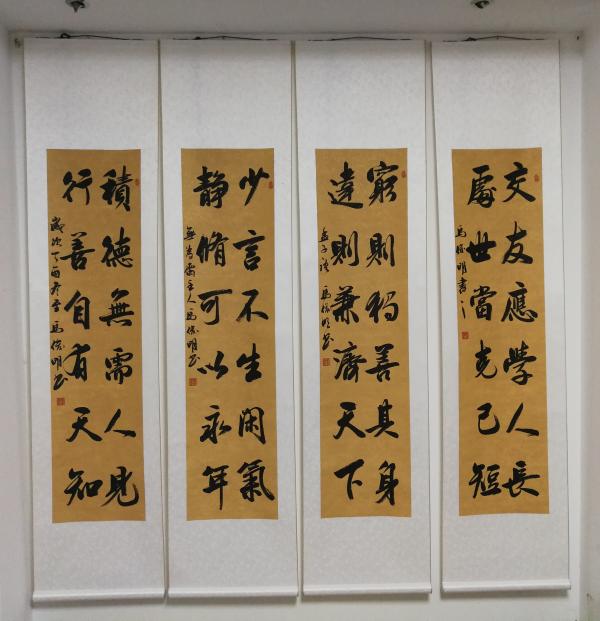 交友應學人長
處世當克己短
馬俊明書
窮則獨善其身
達則兼濟天下
孟子語 馬俊明書
少言不生閑氣
静脩可以永年
無為齋主人馬俊明書
積德無需人見
行善自有天知
歲次丁酉 馬俊明書